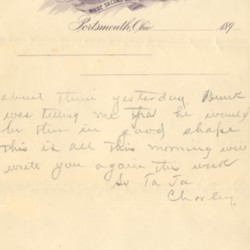 Portsmouth, Ohio 189
about them yesterday. Bunk
was telling me that he would
be then in good shape
This is all this morning will
write you again this week
So Ta Ta
Charley.